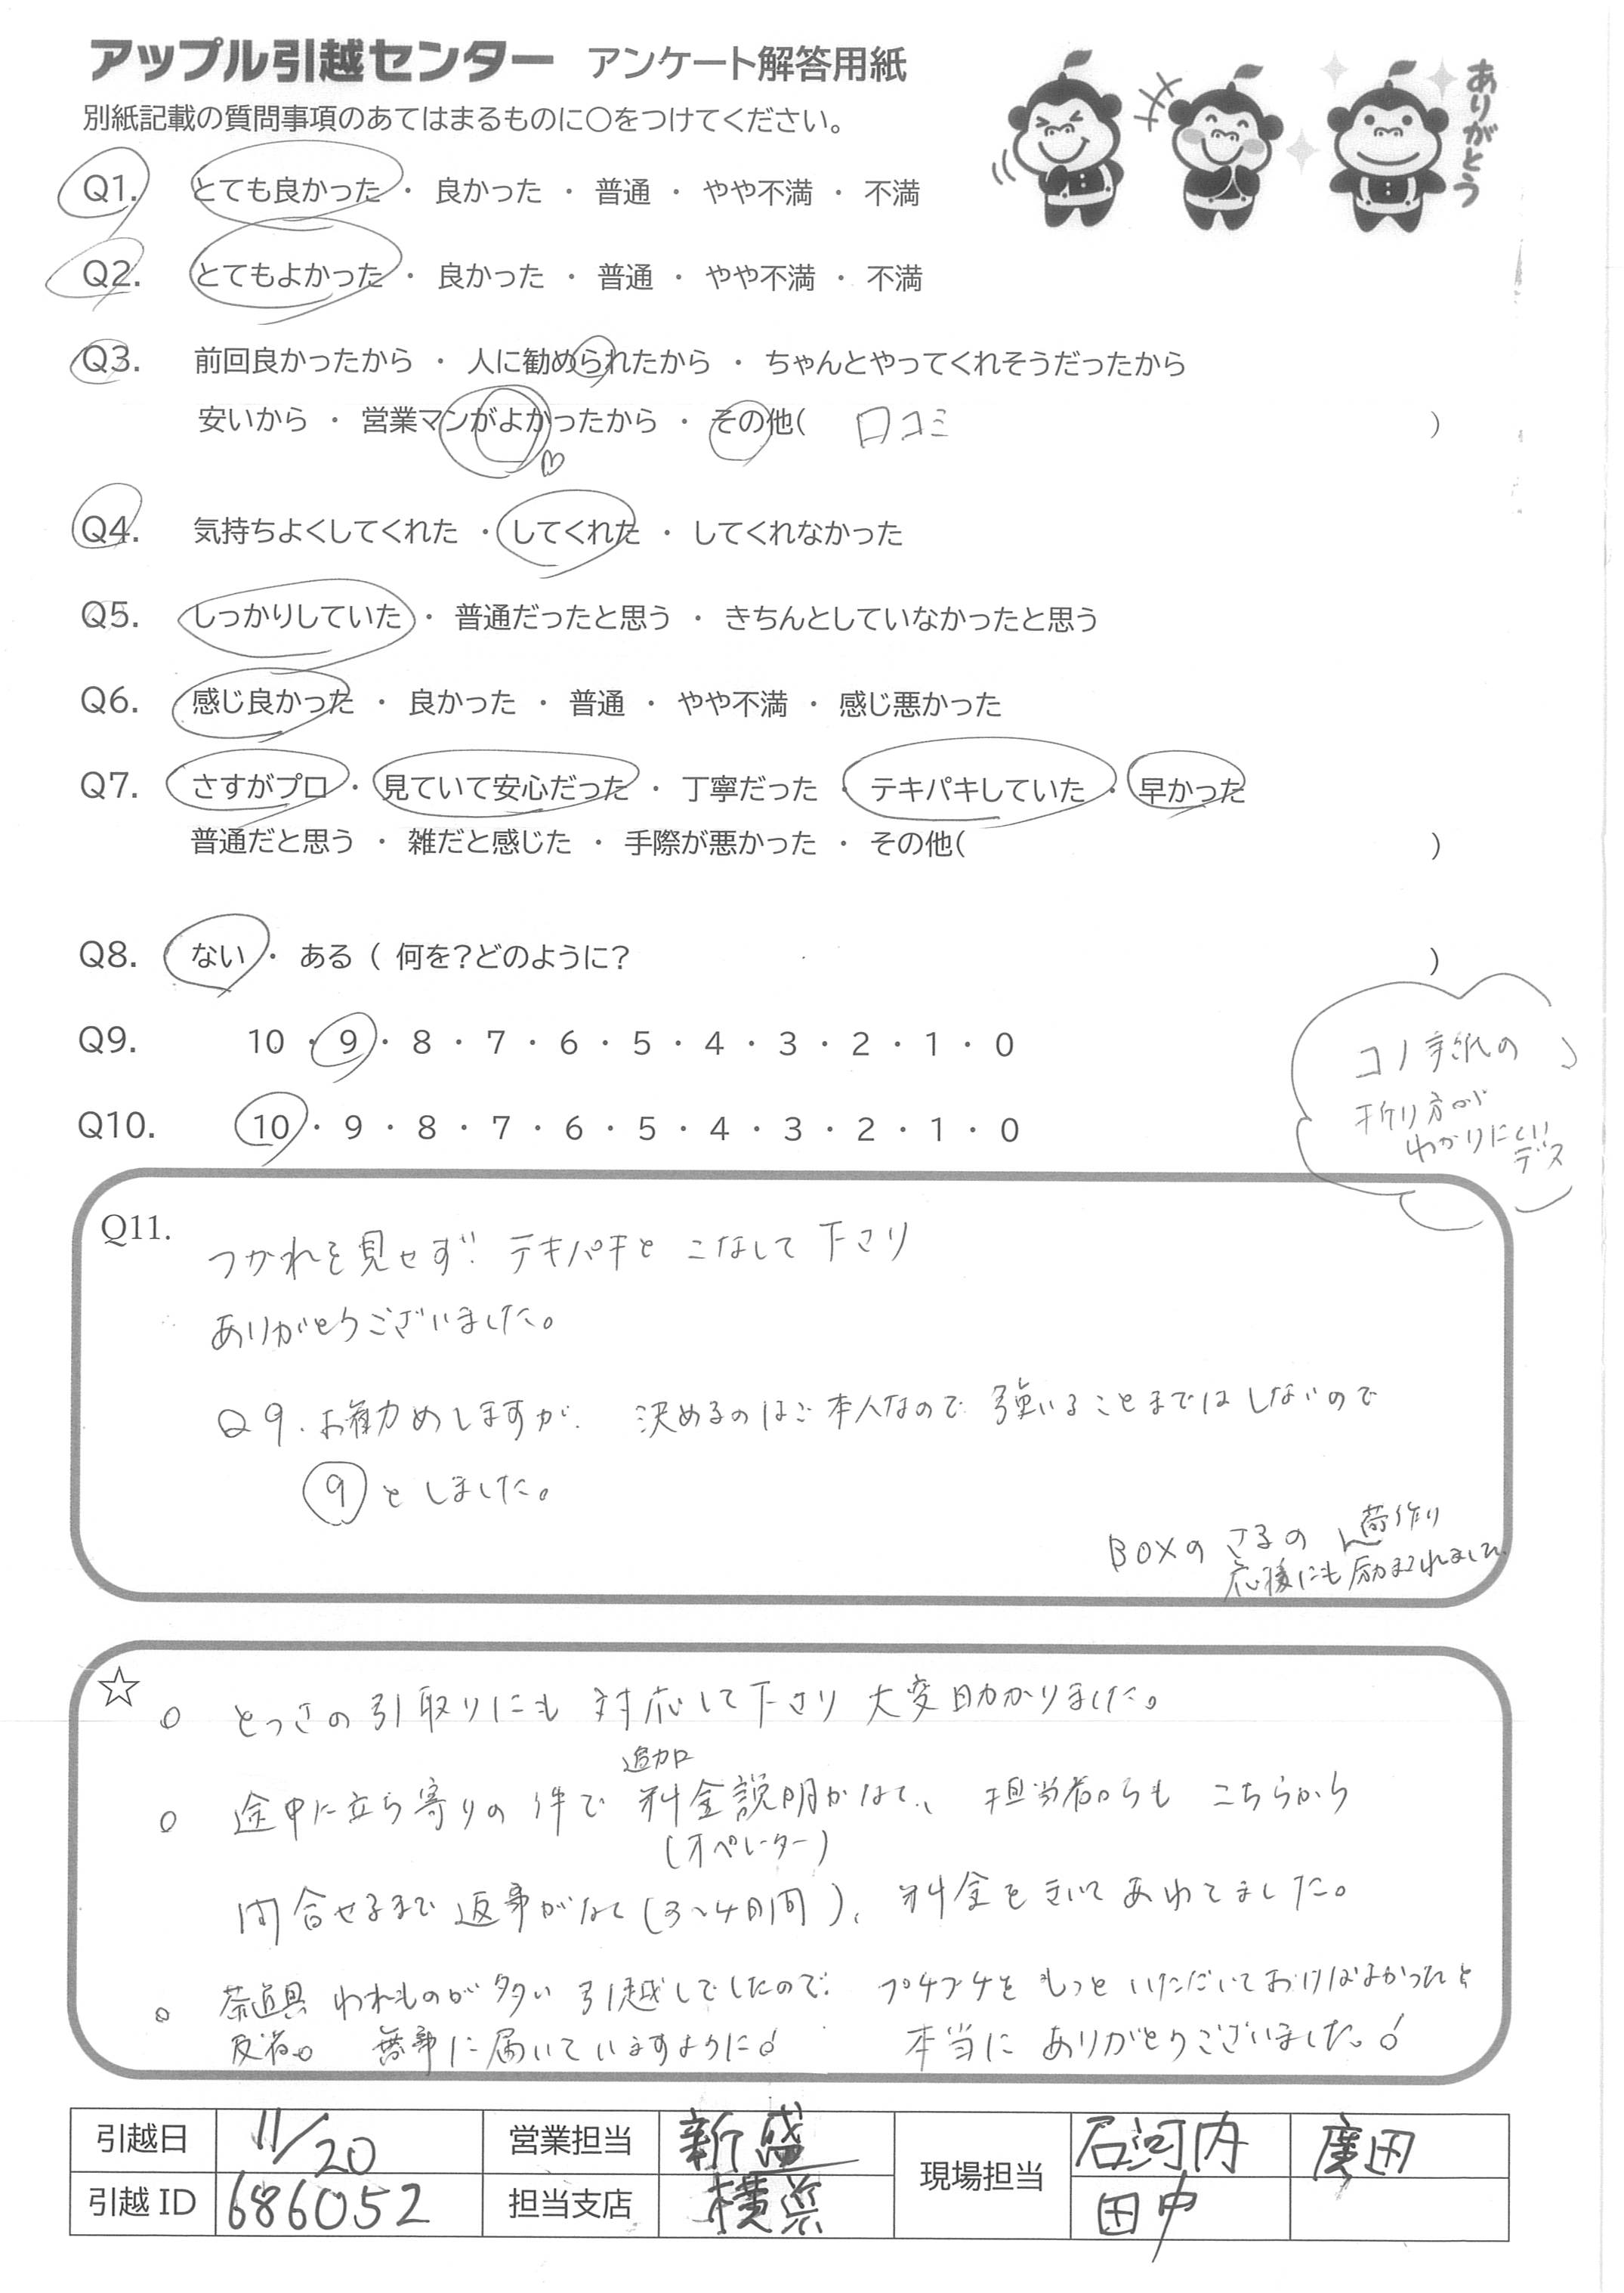 アップル引越センター アンケート解答用紙
ありがとう
別紙記載の質問事項のあてはまるものに○をつけてください。
Q1. とても良かった ・ 良かった ・ 普通 ・ やや不満 ・ 不満
Q2. とてもよかった ・ 良かった ・ 普通 ・ やや不満 ・ 不満
Q3. 前回良かったから ・ 人に勧められたから ・ ちゃんとやってくれそうだったから
安いから ・ 営業マンがよかったから ・ その他( 口コミ )
Q4. 気持ちよくしてくれた ・ してくれた ・ してくれなかった
Q5. しっかりしていた ・ 普通だったと思う ・ きちんとしていなかったと思う
Q6. 感じ良かった ・ 良かった ・ 普通 ・ やや不満 ・ 感じ悪かった
Q7. さすがプロ ・ 見ていて安心だった ・ 丁寧だった ・ テキパキしていた ・ 早かった
普通だと思う ・ 雑だと感じた ・ 手際が悪かった ・ その他( )
Q8. ない ・ ある ( 何を?どのように? )
Q9. 10 ・ 9 ・ 8 ・ 7 ・ 6 ・ 5 ・ 4 ・ 3 ・ 2 ・ 1 ・ 0
コノ手紙の
折り方が
わかりにくい
デス
Q10. 10 ・ 9 ・ 8 ・ 7 ・ 6 ・ 5 ・ 4 ・ 3 ・ 2 ・ 1 ・ 0
Q11.
つかれを見せず! テキパキと こなして下さり
ありがとうございました。
Q9. お勧めしますが、 決めるのはご本人なので 強いることまではしないので
⑨としました。
BOXの さるの 荷作り
応援にも励まされました
☆
○ とっさの引取りにも 対応して下さり 大変助かりました。
追加
○ 途中に立ち寄りの件で 料金説明がなく、 担当者からも こちらから
(オペレーター)
問合せるまで 返事がなく(3〜4日間)、 料金をきいて あわてました。
○ 茶道具 われものが多い 引越しでしたので、 プチプチを もっと いただいておけばよかったと
反省。 無事に届いていますように! 本当に ありがとうございました。!
引越日 11/20 営業担当 新盛 現場担当 石河内 廣田
引越 ID 686052 担当支店 横浜 田中